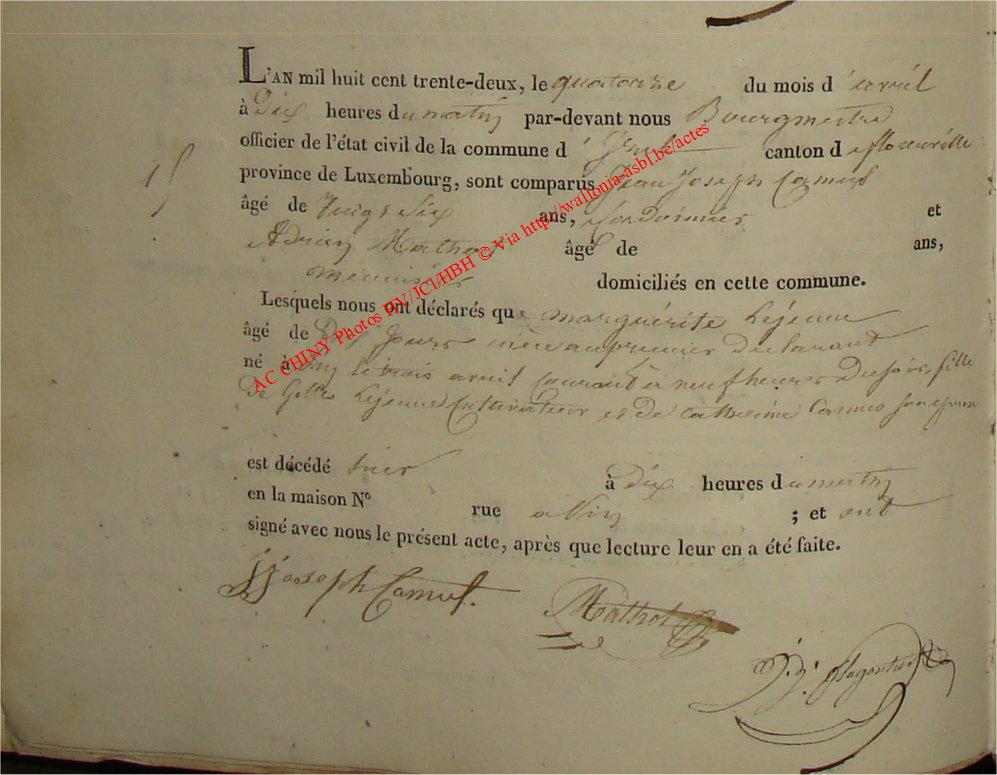 L'AN mil huit cent trente-deux, le quatorze du mois d'avril
à Dix heures du matin par-devant nous Bourgmestre
officier de l'état civil de la commune d' canton de florenville
province de Luxembourg, sont comparus Jean Joseph Camus
15
âgé de vingt six ans, Cordonnier et
Adrien Mathot âgé de ans,
menuisier domiciliés en cette commune.
Lesquels nous ont déclarés que marguérite Lejeune
âgé de Dix jours nièce au premier Déclarant
né à le trois avril courant à neuf heures Du soir, fille
De Gilles Lejeune Cultivateur et de catherine Camus
est décédé hier à Dix heures du matin
en la maison N° rue ; et ont
signé avec nous le présent acte, après que lecture leur en a été faite.
JJoseph Camus.
Mathot
AC CHINY Photos HV/JCl/HBH © Via http://wallonia-asbl.be/actes